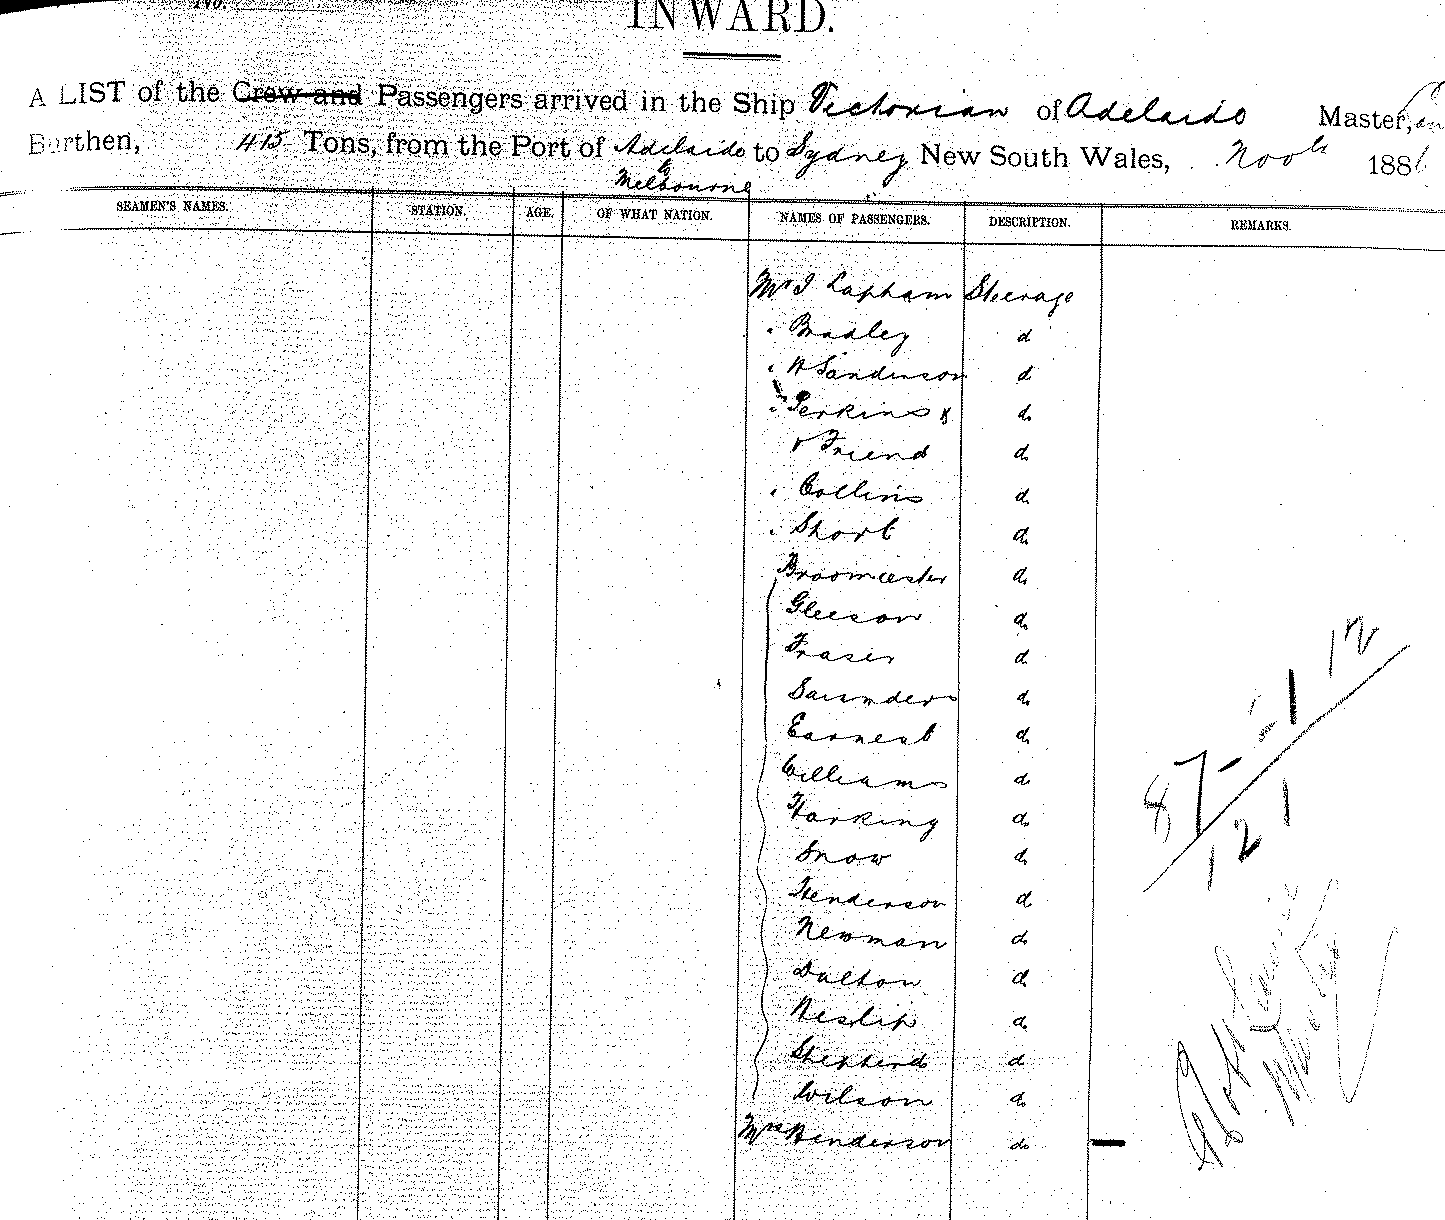 No.
INWARD.
A LIST of the Crew and Passengers arrived in the Ship Victorian of Adelaide Master,
Burthen, 415 Tons, from the Port of Adelaide to Sydney New South Wales, 188
& Melbourne
SEAMEN'S NAMES. STATION. AGE. OF WHAT NATION. NAMES OF PASSENGERS. DESCRIPTION. REMARKS.
Mr J Lapham Steerage
" Bradley d
" H Sanderson d
" Perkins & d
" Friend d
" Collins d
" Short d
d
Gleeson d
Fraser d
Saunders d
Earnest d
Williams d
Harking d
Snow d
Henderson d
Newman d
Dalton d
Heslip d
Shepherd d
Wilson d
Mrs Henderson d
87-
12 1